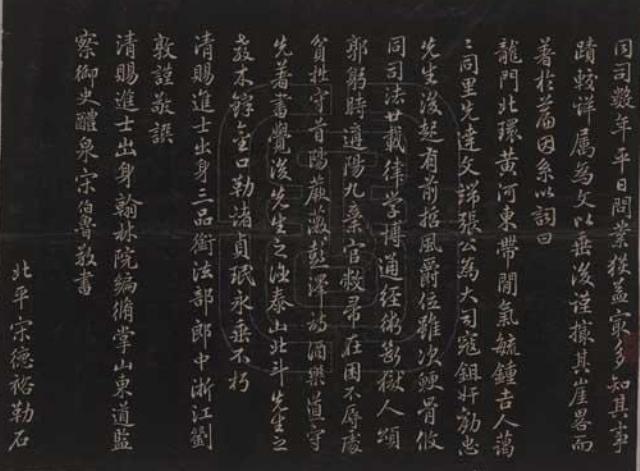 同司数年平日問業猱益最多知其事
蹟較詳属為文以垂後謹據其崖畧而
著於篇因系以詞曰
龍門北環黄河東帶間氣毓鍾吉人藹
〻同里先達文譁張公為大司寇鉏奸勸忠
先生後起有前招風爵位雖次鯁骨攸
同司法廿載律學博通経術斷獄人頌
郭躬時遘陽九棄官敝帚在困不辱處
貧批守首陽蕨薇彭澤詩酒樂道守
先著書覺後先生之泑泰山北斗先生之
教木鐸金口勒諸貞珉永垂不朽
清賜進士出身三品銜法部郎中浙江劉
敦謹敬譔
清賜進士出身翰林院編脩掌山東道監
察御史醴泉宋伯魯敬書
北平宋德裕勒石